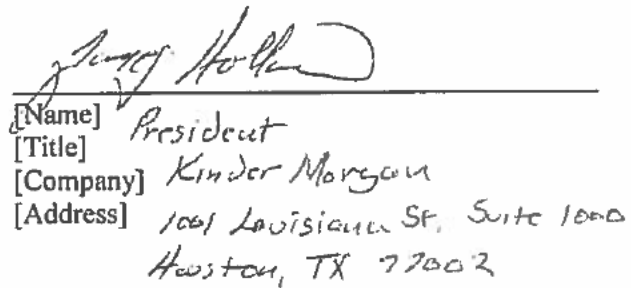 James Holland
[Name]
[Title] President
[Company] Kinder Morgan
[Address] 1001 Louisiana St, Suite 1000
Houston, TX 77002